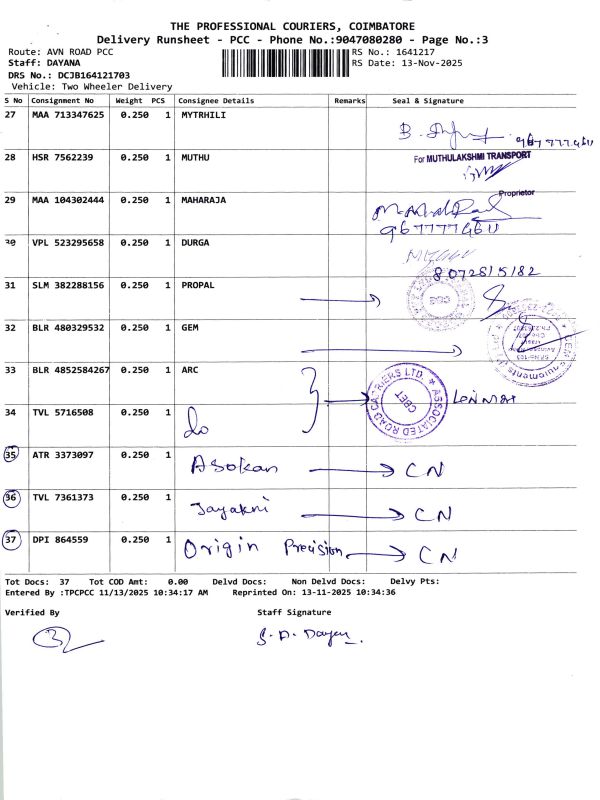 THE PROFESSIONAL COURIERS, COIMBATORE
Delivery Runsheet - PCC - Phone No.:9047080280 - Page No.:3
Route: AVN ROAD PCC
RS No.: 1641217
Staff: DAYANA
RS Date: 13-Nov-2025
DRS No.: DCJB164121703
Vehicle: Two Wheeler Delivery
S No Consignment No Weight PCS Consignee Details Remarks Seal & Signature
27 MAA 713347625 0.250 1 MYTRHILI
28 HSR 7562239 0.250 1 MUTHU
For MUTHULAKSHMI TRANSPORT
Proprietor
29 MAA 104302444 0.250 1 MAHARAJA
9677777460
30 VPL 523295658 0.250 1 DURGA
8072815182
31 SLM 382288156 0.250 1 PROPAL
32 BLR 480329532 0.250 1 GEM
33 BLR 4852584267 0.250 1 ARC
ASSOCIATED ROAD CARRIERS LTD.
CBET
34 TVL 5716508 0.250 1 do
35 ATR 3373097 0.250 1 Asokan CN
36 TVL 7361373 0.250 1 Jayakni CN
37 DPI 864559 0.250 1 Origin Precision CN
Tot Docs: 37 Tot COD Amt: 0.00 Delvd Docs: Non Delvd Docs: Delvy Pts:
Entered By :TPCPCC 11/13/2025 10:34:17 AM Reprinted On: 13-11-2025 10:34:36
Verified By Staff Signature
S. A. Dayan